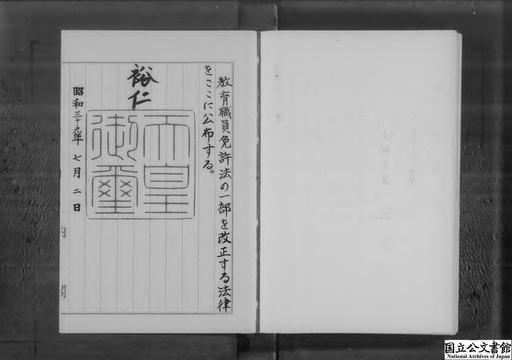 教育職員免許法の一部を改正する法律
をここに公布する。
裕仁
天皇
御璽
昭和三十九年七月二日
内閣
国立公文書館
National Archives of Japan